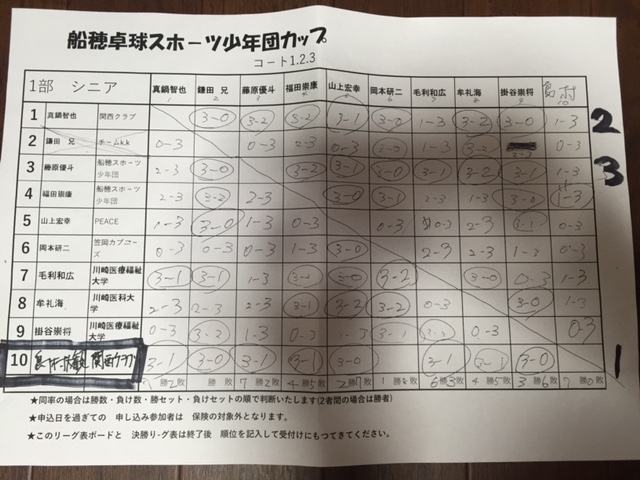 船穂卓球スポーツ少年団カップ
コート1.2.3
1部 シニア 真鍋智也 鎌田 兄 藤原優斗 福田崇康 山上宏幸 岡本研二 毛利和広 牟礼海 掛谷崇将
1 真鍋智也 関西クラブ 3-0 3-2 3-2 3-1 3-0 1-3 3-2 3-0 1-3 2
2 鎌田 兄 チームkk 0-3 0-3 2-3 0-3 0-3 1-3 3-2 0-3
3 藤原優斗 船穂スポーツ少年団 2-3 3-0 3-2 3-1 3-0 3-1 3-2 3-1 1-3 3
4 福田崇康 船穂スポーツ少年団 2-3 3-2 2-3 3-0 3-1 2-3 1-3 3-0 1-3
5 山上宏幸 PEACE 1-3 3-0 1-3 0-3 0-3 0-3 2-3 3-1 0-3
6 岡本研二 笠岡カブコーズ 0-3 0-3 0-3 1-3 3-0 2-3 2-3 1-3 0-3
7 毛利和広 川崎医療福祉大学 3-1 3-1 1-3 3-2 3-0 3-2 3-0 0-3 1-3
8 牟礼海 川崎医科大学 2-3 2-3 2-3 3-1 3-2 3-2 0-3 3-0 1-3
9 掛谷崇将 川崎医療福祉大学 0-3 3-2 1-3 0-3 1-3 3-1 0-3 0-3
10 関西クラブ 3-1 3-0 3-1 3-1 3-0 3-1 3-1 3-0 1
★同率の場合は勝数・負け数・勝セット・負けセットの順で判断いたします(2者間の場合は勝者)
★申込日を過ぎての 申し込み参加者は 保険の対象外となります。
★このリーグ表ボードと 決勝リーグ表は終了後 順位を記入して受付けにもつてきてください。